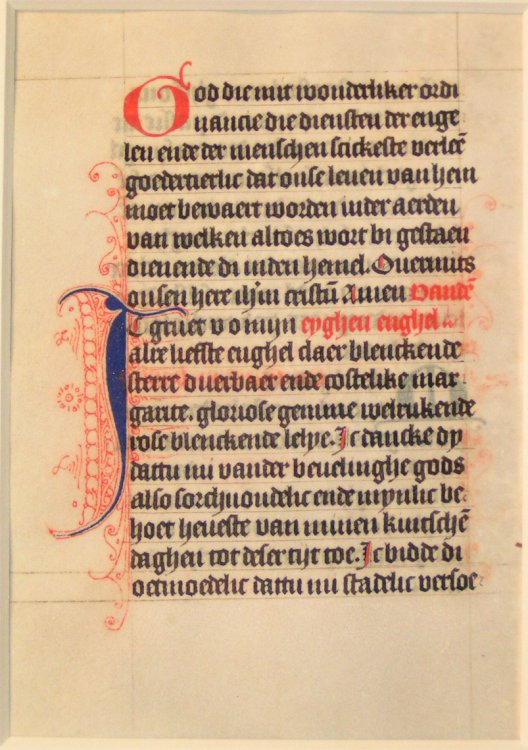 God die mit wonderliker ordi
nancie die diensten der enge
len ende der menschen scickeste verleē
goedertierlic dat onse leven van hem
moet bewaert worden inder aerden
van welken altoes wort bi gestaen
dienende di inden hemel. Overmits
onsen here ihm cristū Amen Vandē
Ic gruet v o mijn eyghen enghel
alre liefste enghel claer blenckende
sterre duerbaer ende costelike mar
garite. gloriose gemme welrukende
rose blenckende lelye. Ic dancke dy
dattu mi vander bevelinghe gods
also sorchvoudelic ende mynlic be
hoet heveste van minen kintschē
daghen tot deser tijt toe. Ic bidde di
oetmoedelic dattu mi stadelic versoe